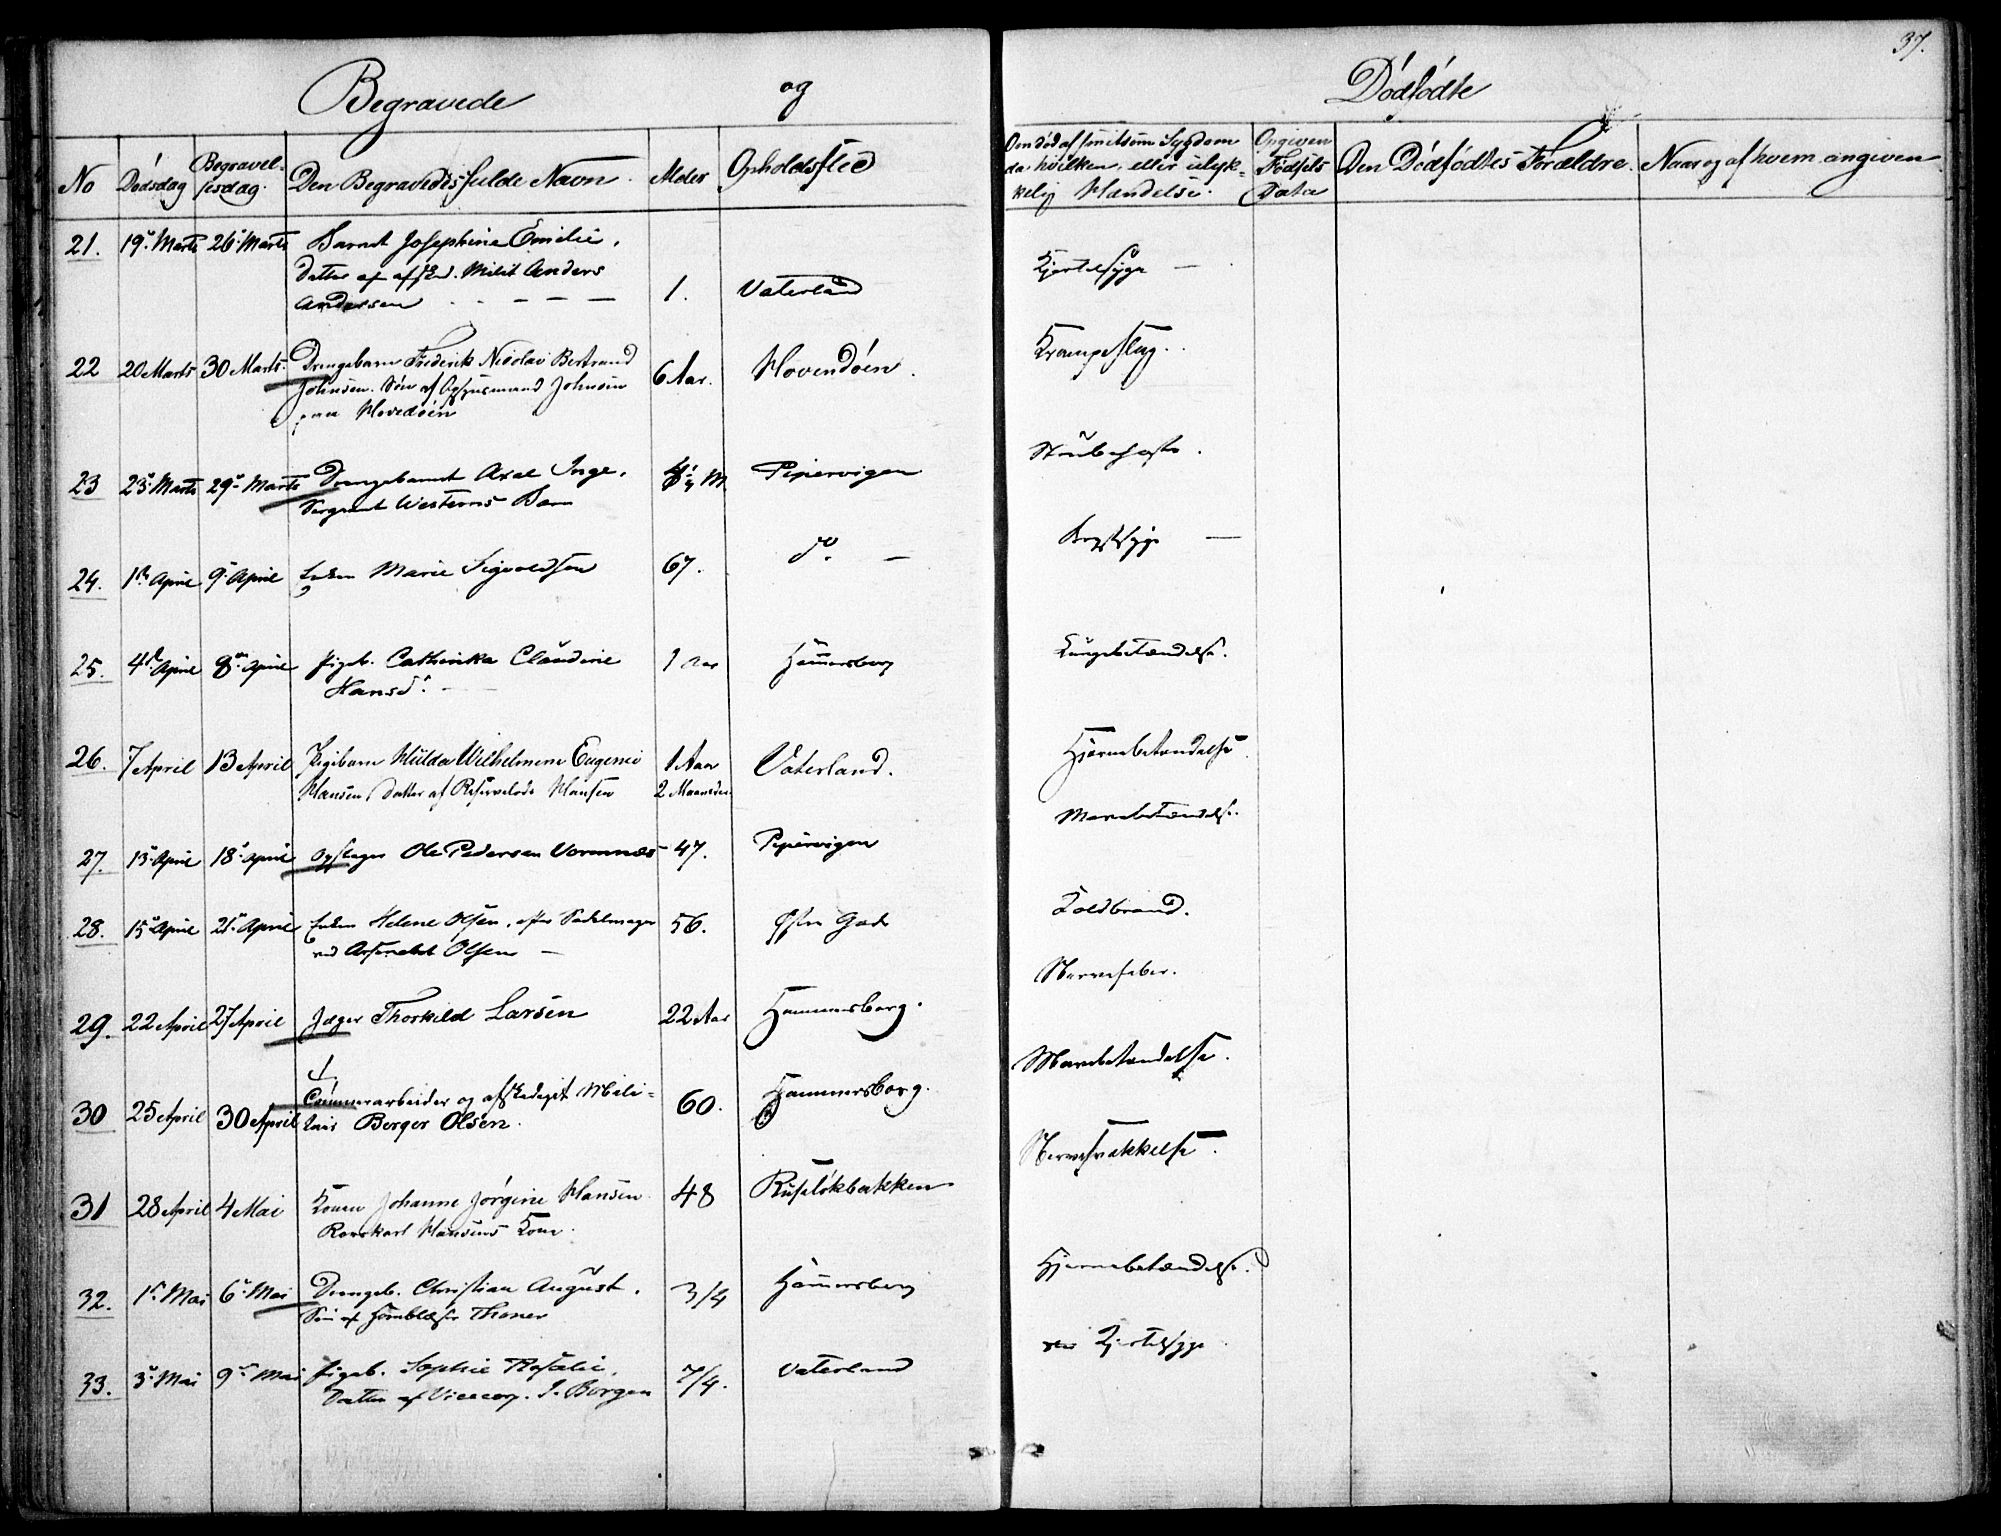 37.
Begravede og Dødfødte
No Dødsdag Begravel-sesdag. Den Begravedes fulde Navn. Alder Opholdssted Om død af smitsom Sygdom da hvilken, eller ulyk-kelig Hændelse. Opgiven Fødsels Data Den Dødfødtes Forældre. Naar og af hvem angiven
21. 19. Marts 26. Marts Barnet Josephine Emilie,
Datter af afsked. Milit Anders
Andersen 1. Vaterland Kjertelsyge
22 20 Marts 30 Marts. Drengebarn Frederik Nicolai Bertrand
Johnsen. Søn af Opsynsmand Johnsen
paa Hovedøen 6 Aar. Hovendøen. Krampeslag.
23 23. Marts 29. Marts Drengebarnet Axel Inge,
Sergeant Westerns Barn M. Pipervigen Strubehoste.
24. 1ste April 9. April Enken Marie Sigvoldsen 67. do. Brystsyge
25. 4de April 8de April Pigeb. Cathinka Claudine
Hansd. 1 Aar Hammersborg Lungebetændelse.
26. 7 April 13 April Pigebarn Hulda Wilhelmine Eugenie
Hansen, Datter af Reservelods Hansen 1 Aar
2 Maaneder Vaterland. Hjernebetændelse
27. 13. April 18. April Opslager Ole Pedersen Vormnæs 47. Pipervigen Mavebetændelse.
28. 15. April 21. April Enken Helene Olsen, efter Sadelmager
ved Arsenalet Olsen 56. Østre Gade Koldbrand.
29. 22 April 27 April Jæger Thorkild Larsen 22 Aar Hammersborg. Nervefeber.
30 25 April 30 April Tømmerarbeider og afskediget Mili-
tair Berger Olsen. 60. Hammersborg. Mavebetændelse.
31 28 April 4 Mai Konen Johanne Jørgine Hansen
Rorskarl Hansens Kone. 48 Ruseløkbakken Nervesvækkelse.
32. 1. Mai 6. Mai Drengeb. Christian August,
Søn af Hornblæser Thoner 3/4 Hammersborg Hjernebetændelse.
33. 3. Mai 9. Mai Pigeb. Sophie Rosalie,
Datter af Vicecorp. J. Borgen 7/4. Vaterland Kjertelsyge